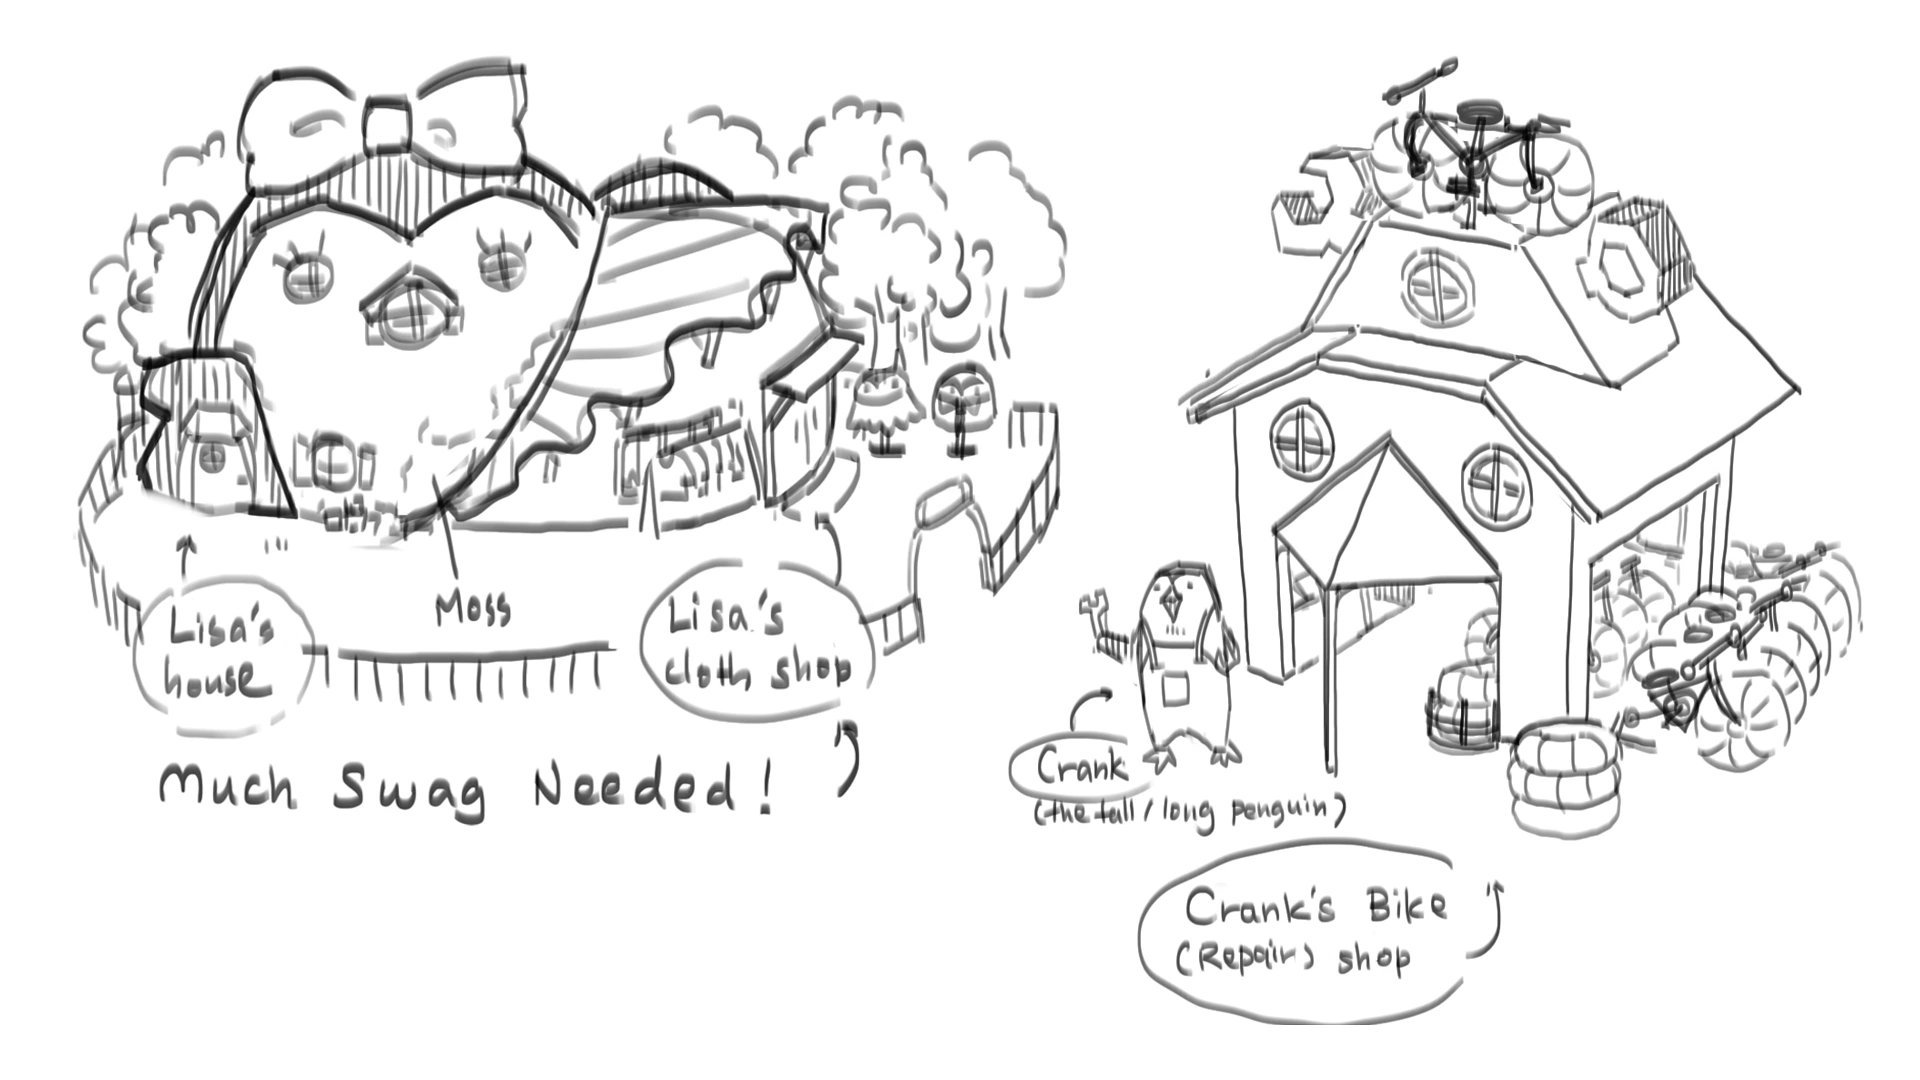 Lisa's
house
Moss
Lisa's
cloth shop
Much Swag Needed!
Crank
(the tall/long penguin)
Crank's Bike
(Repair) shop